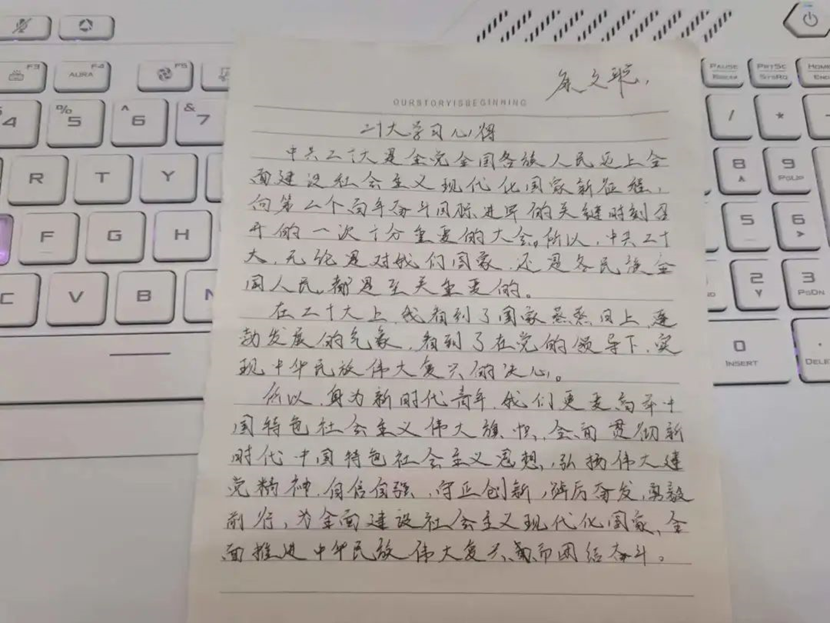 OURSTORYISBEGINNING
二十大学习心得
中共二十大是全党全国各族人民迈上全
面建设社会主义现代化国家新征程,
向第二个百年奋斗目标进军的关键时刻召
开的一次十分重要的大会。所以,中共二十
大,无论是对我们国家,还是各民族全
国人民,都是至关重要的。
在二十大上,我看到了国家蒸蒸日上,蓬
勃发展的气象,看到了在党的领导下,实
现中华民族伟大复兴的决心。
所以,身为新时代青年,我们更要高举中
国特色社会主义伟大旗帜,全面贯彻新
时代中国特色社会主义思想,弘扬伟大建
党精神,自信自强,守正创新,踔厉奋发,勇毅
前行,为全面建设社会主义现代化国家,全
面推进中华民族伟大复兴而团结奋斗。
F3 F4 F5
AURA
4 % 5 ^ 6 & 7
R T Y
F G H
C V B
PAUSE BREAK PRTSC SYSRQ HOME
/ *
8 9 PGUP
5 6
2 3 PGDN
0 INSERT